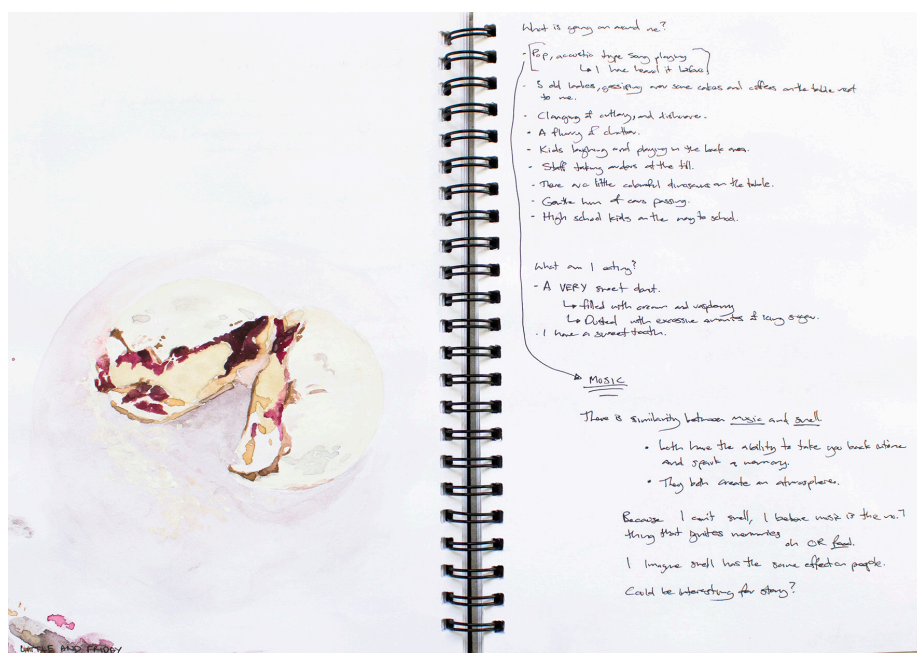 What is going on around me?
- Pop, acoustic type song playing
↳ I have heard it before
- 3 old ladies, gossiping over some cakes and coffees on the table next
to me.
- Clanging of cutlery, and dishware.
- A flurry of chatter.
- Kids laughing and playing in the back area.
- Staff taking orders at the till.
- There are little colourful dinosaurs on the table.
- Gentle hum of cars passing.
- High school kids on the way to school.
What am I eating?
- A VERY sweet donut.
↳ filled with cream and raspberry
↳ Dusted with excessive amounts of icing sugar.
- I have a sweet tooth.
MUSIC
There is similarity between music and smell
• both have the ability to take you back in time
and spark a memory.
• They both create an atmosphere.
Because I can't smell, I believe music is the no. 1
thing that ignites memories
oh OR food.
I imagine smell has the same effect on people.
Could be interesting for story?
LITTLE AND FRIDAY